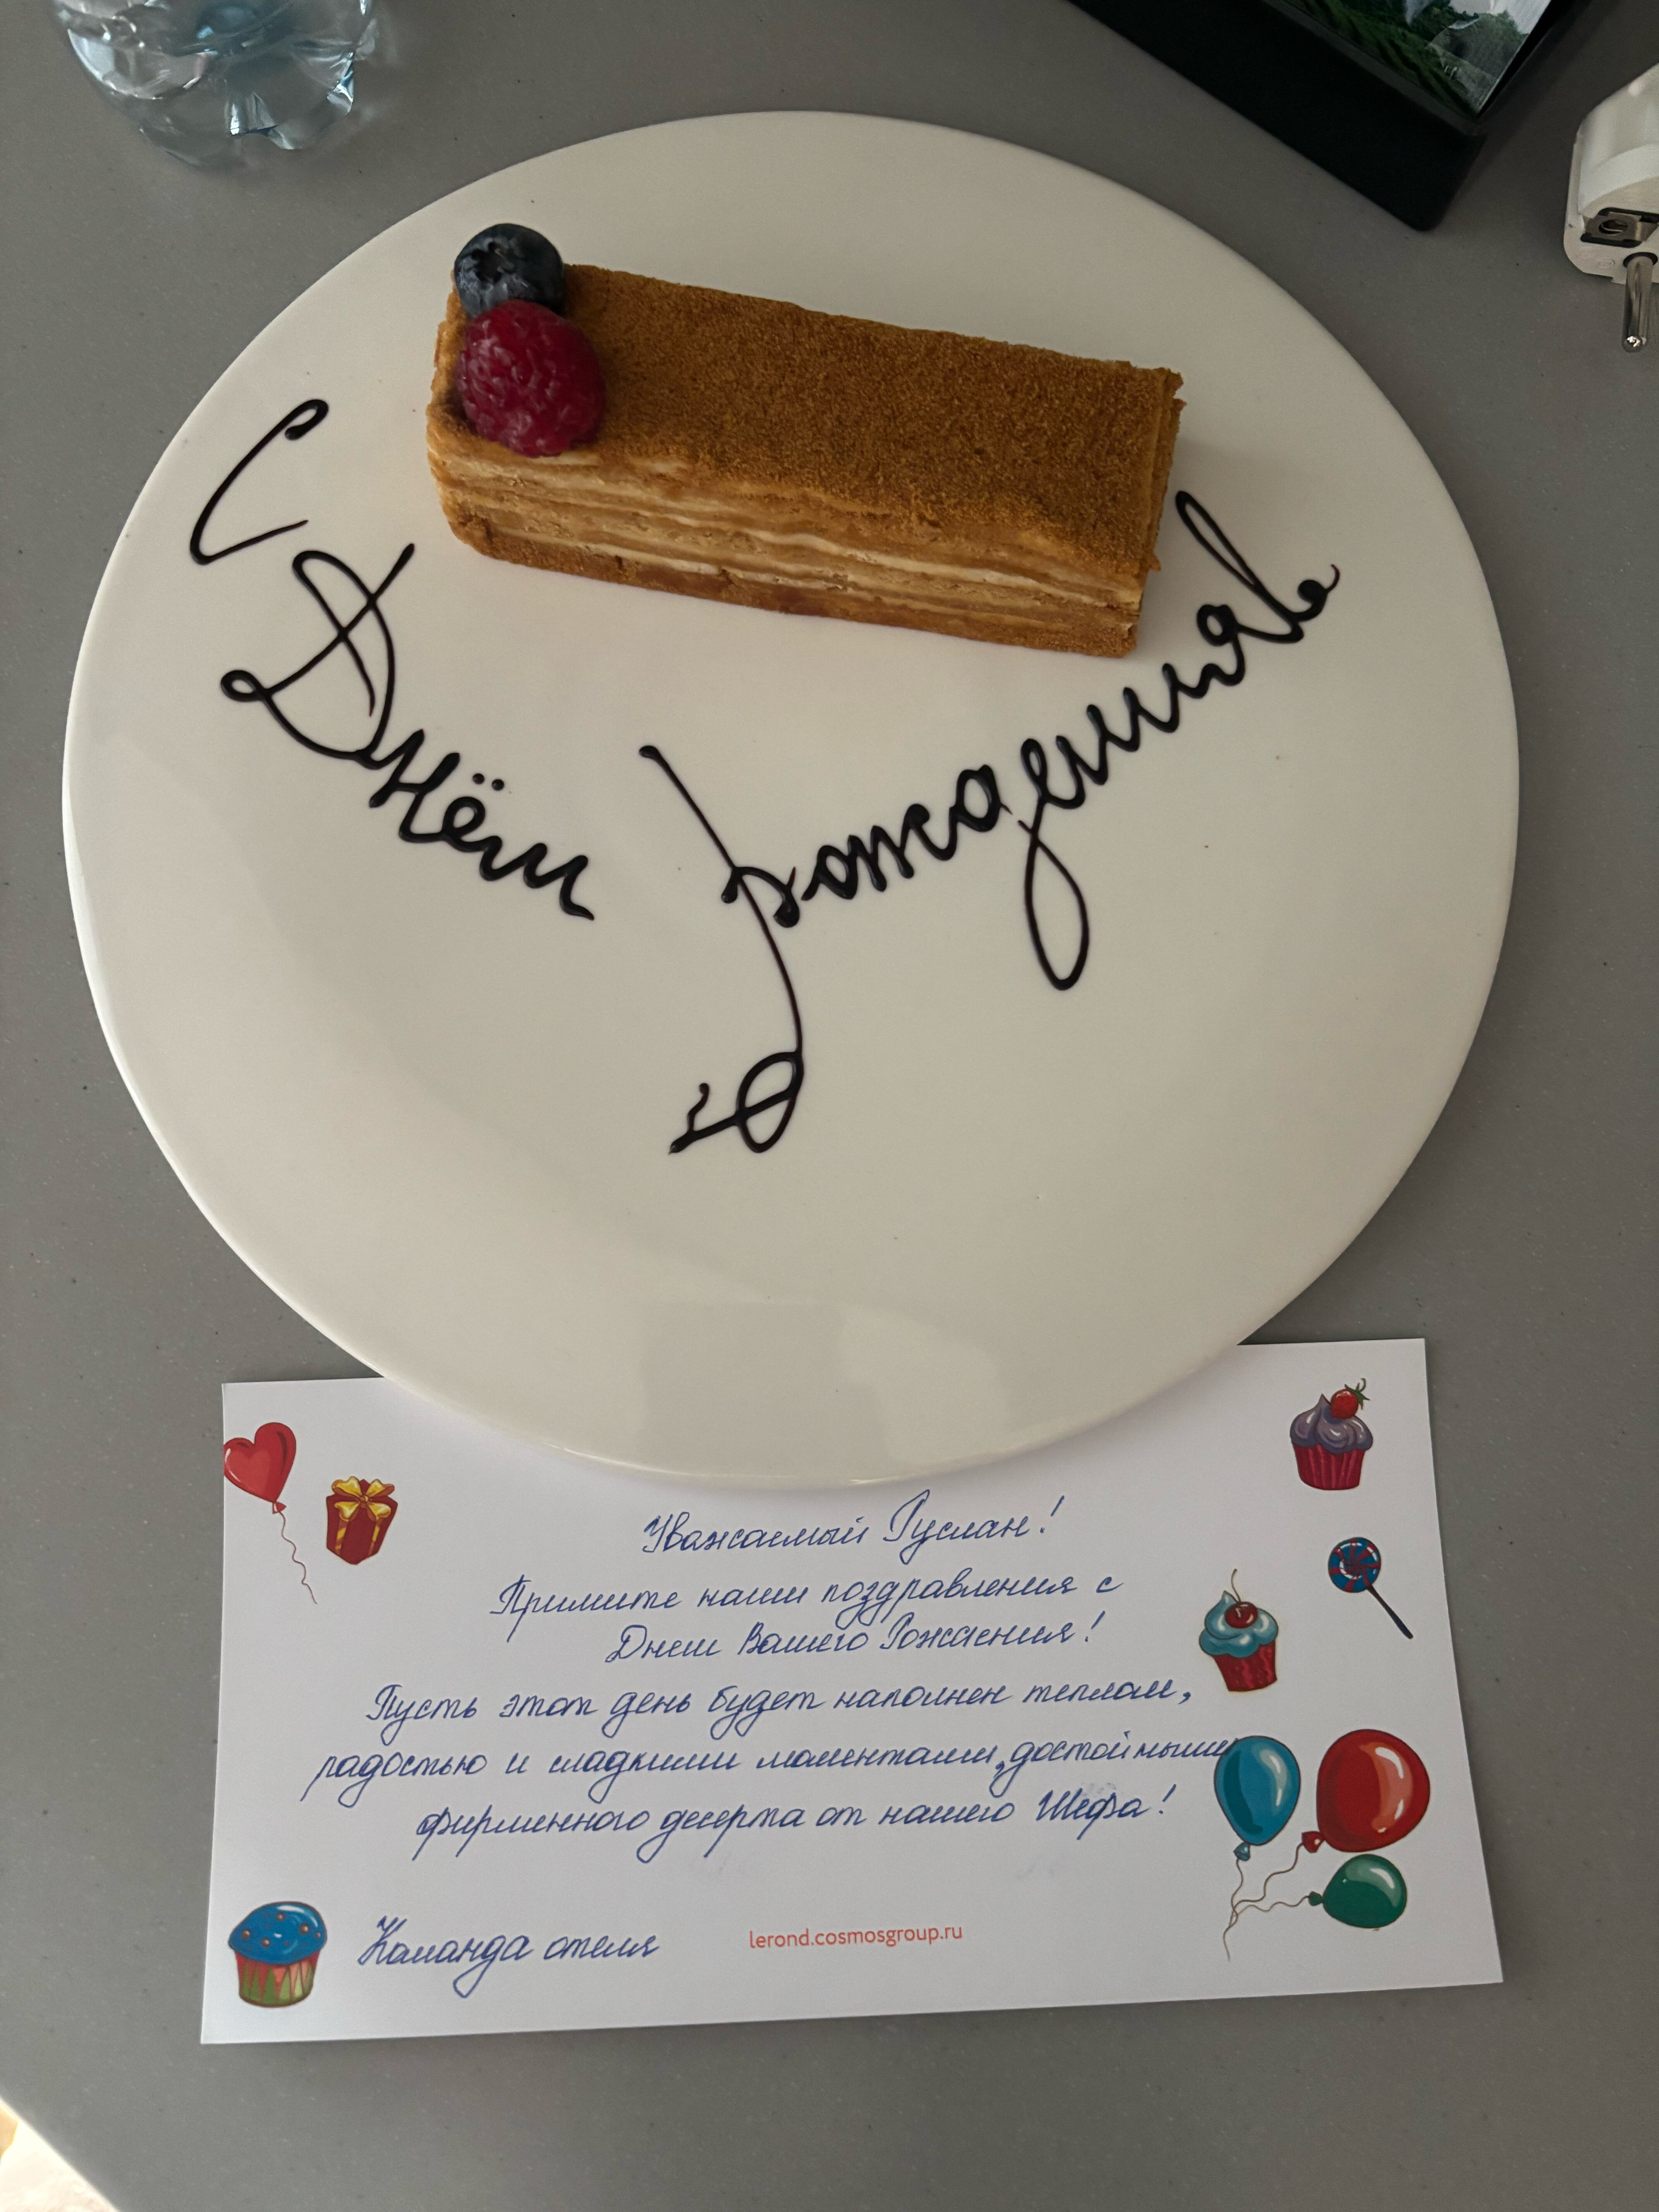 С
Днём
рождения
Уважаемый Руслан!
Примите наши поздравления с
Днем Вашего Рождения!
Пусть этот день будет наполнен теплом,
радостью и сладкими моментами, достойными
фирменного десерта от нашего Шефа!
Команда отеля
lerond.cosmosgroup.ru